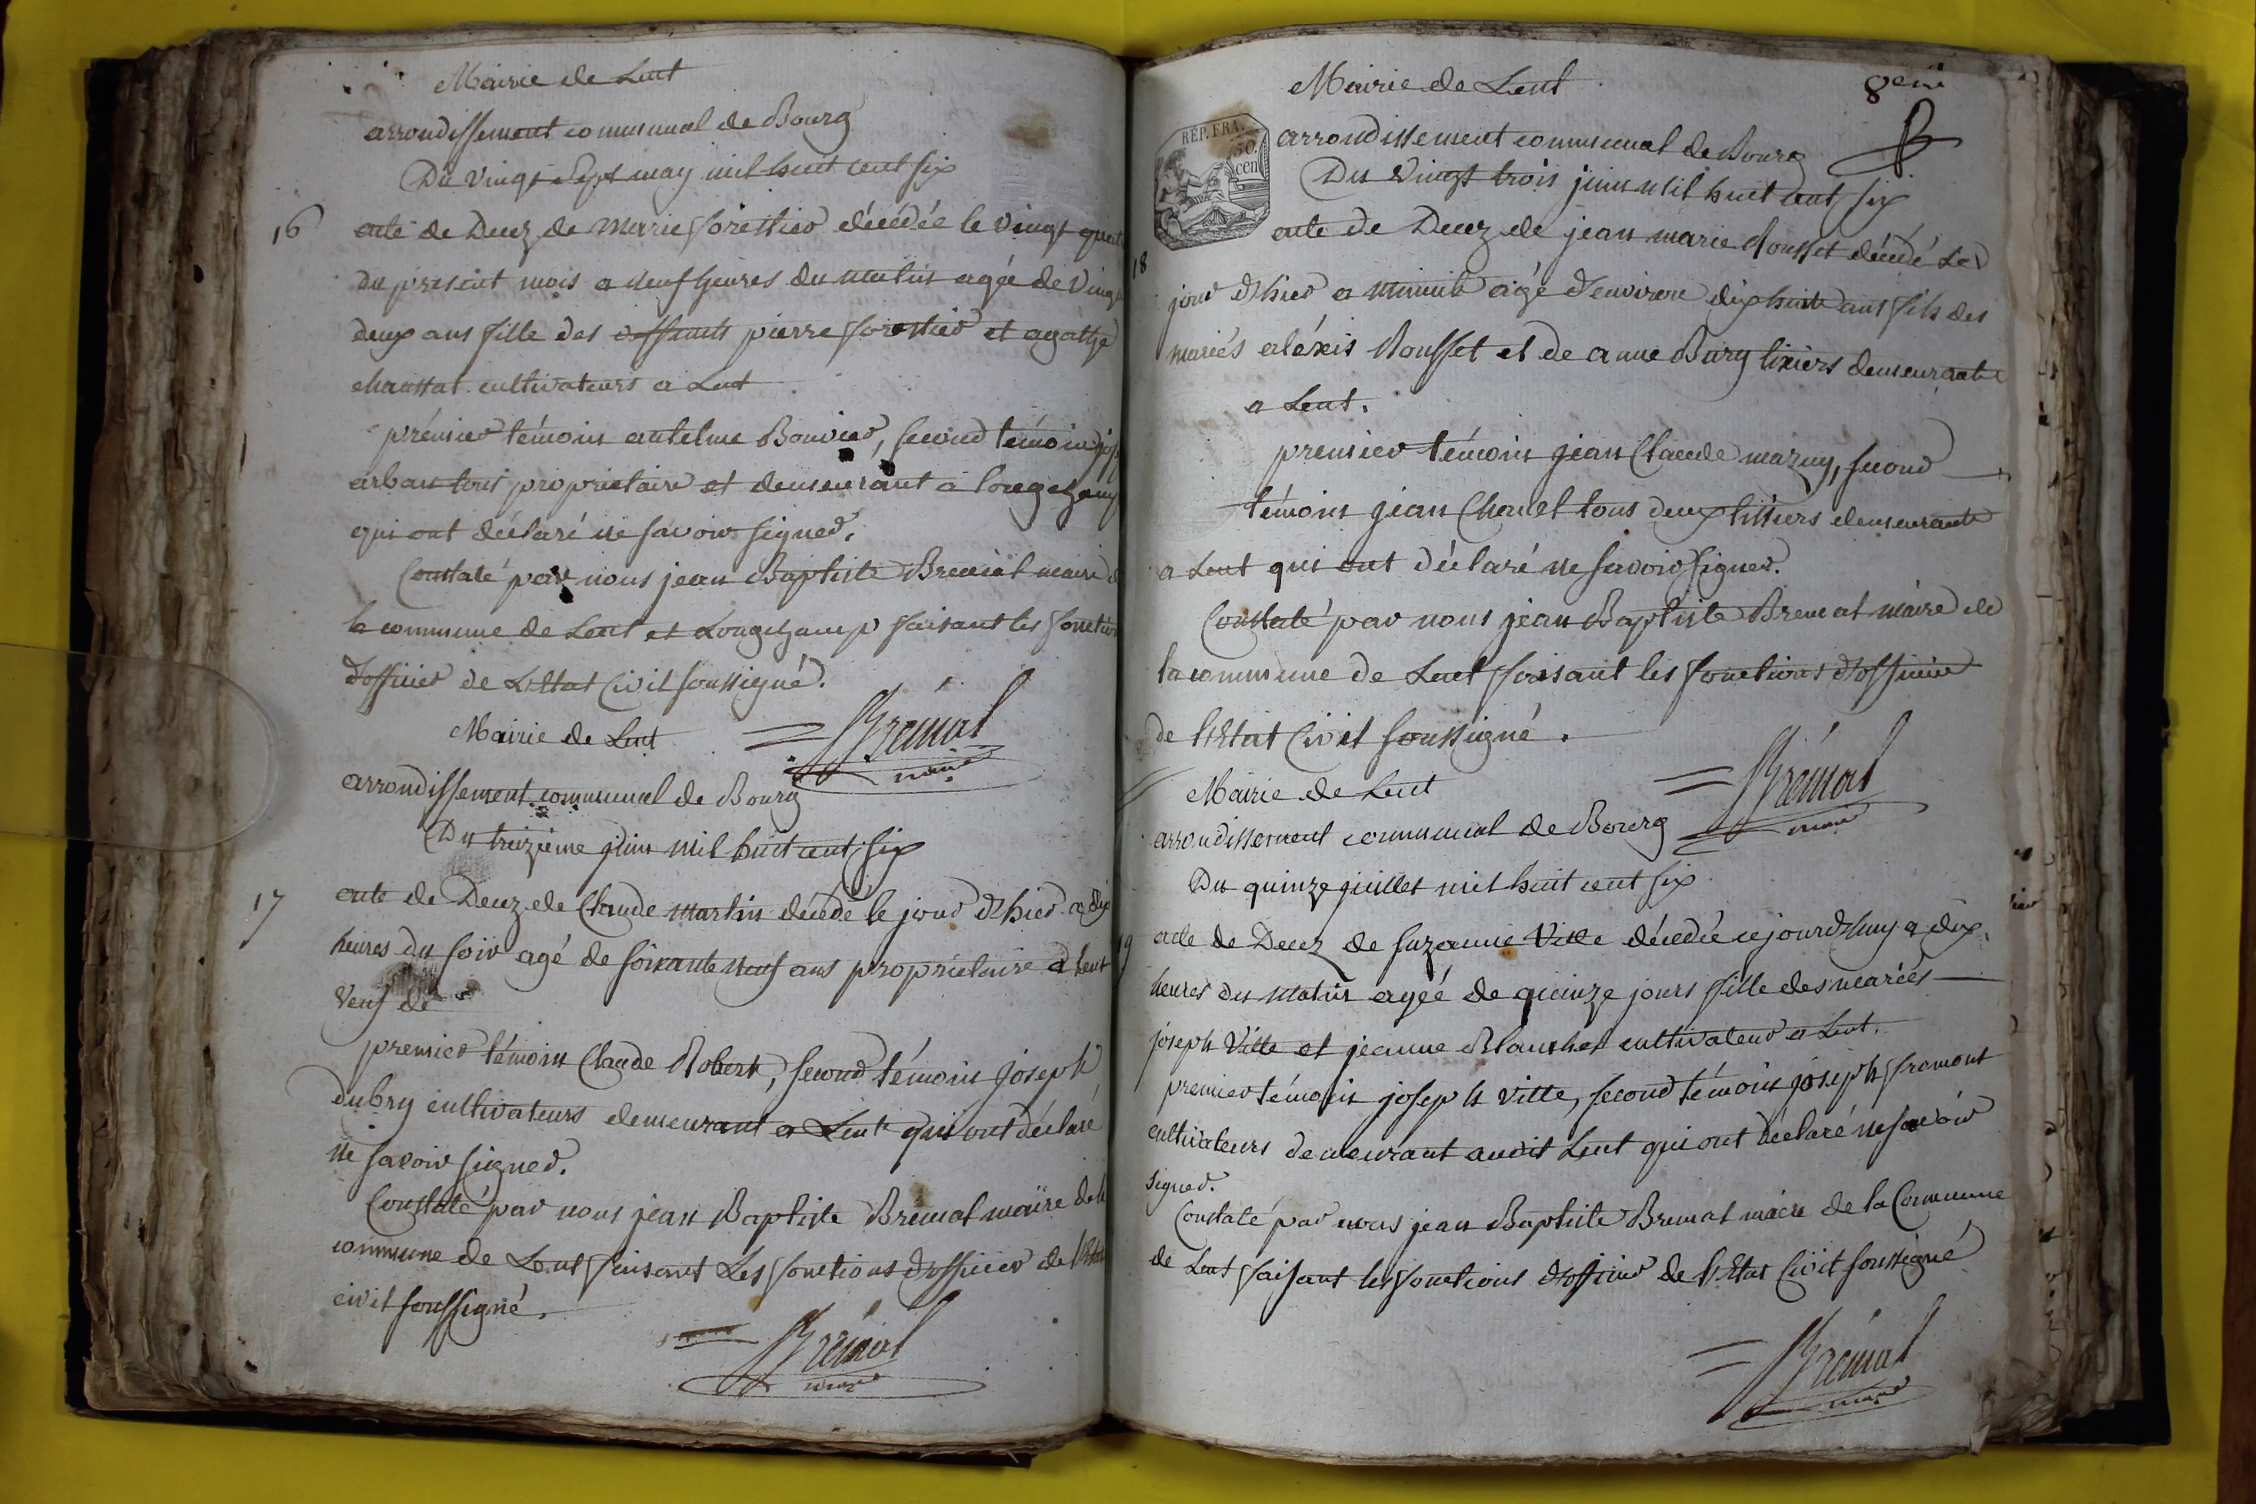 Mairie de Lent
arrondissement communal de Bourg
Du vingt Sept may mil huit cent six
16
acte de Decez de Marie forestier décédée le vingt
du present mois a neuf heures du matin agée de vingt
deux ans fille des deffunts pierre forestier et agathe
chaussat cultivateurs a Lent
prémier témoin antelme Bouvier, second témoin
arban tous proprietaire et demeurant à longchamp
qui ont déclaré ne savoir signer.
Constaté par nous jean Baptiste Brémal maire
la commune de Lent et Longchamp faisant les fonctions
d'officier de L'Etat Civil soussigné.
Mairie de Lent
Brémal
maire
arrondissement communal de Bourg
Du treizième juin mil huit cent six
17
acte de Decez de Claude Martin décédé le jour d'hier a dix
heures du soir agé de soixante neuf ans proprietaire a Lent
Veuf de
premier témoin Claude Robert, second témoin Joseph
dubry cultivateurs demeurant a Lent qui ont déclaré
ne savoir signer.
Constaté par nous jean Baptiste Brémal maire de la
commune de Lent faisant Les fonctions d'officier de l'Etat
civil soussigné.
Brémal
maire
Mairie de Lent
RÉP. FRA.
50.
cen
arrondissement communal de Bourg
Du Vingt trois juin mil huit cent six
acte de Decez de jean marie Rousset décédé Le
18
jour d'hier a minuit agé d'environ dix huit ans fils des
mariés aléxis Rousset et de anne Burg tixiers demeurants
a Lent.
premier témoin jean Claude mazuy, second
témoin jean Chanel tous deux tissiers demeurants
a Lent qui ont déclaré ne savoir signer.
Constaté par nous jean Baptiste Bremal maire de
la commune de Lent faisant les fonctions d'officier
de l'Etat Civil soussigné.
Mairie de Lent
Brémal
maire
arrondissement communal de Bourg
Du quinze juillet mil huit cent six
19
acte de Decez de suzanne Ville décédée cejourd'huy a dix
heures du Matin agée de quinze jours fille des mariés
joseph Ville et jeanne Blanchet cultivateur a Lent.
premier témoin joseph Ville, second témoin joseph fromont
cultivateurs demeurant audit Lent qui ont déclaré ne savoir
signer.
Constaté par nous jean Baptiste Bremal maire de la Commune
de Lent faisant les fonctions d'officier de l'Etat Civil soussigné
Brémal
maire